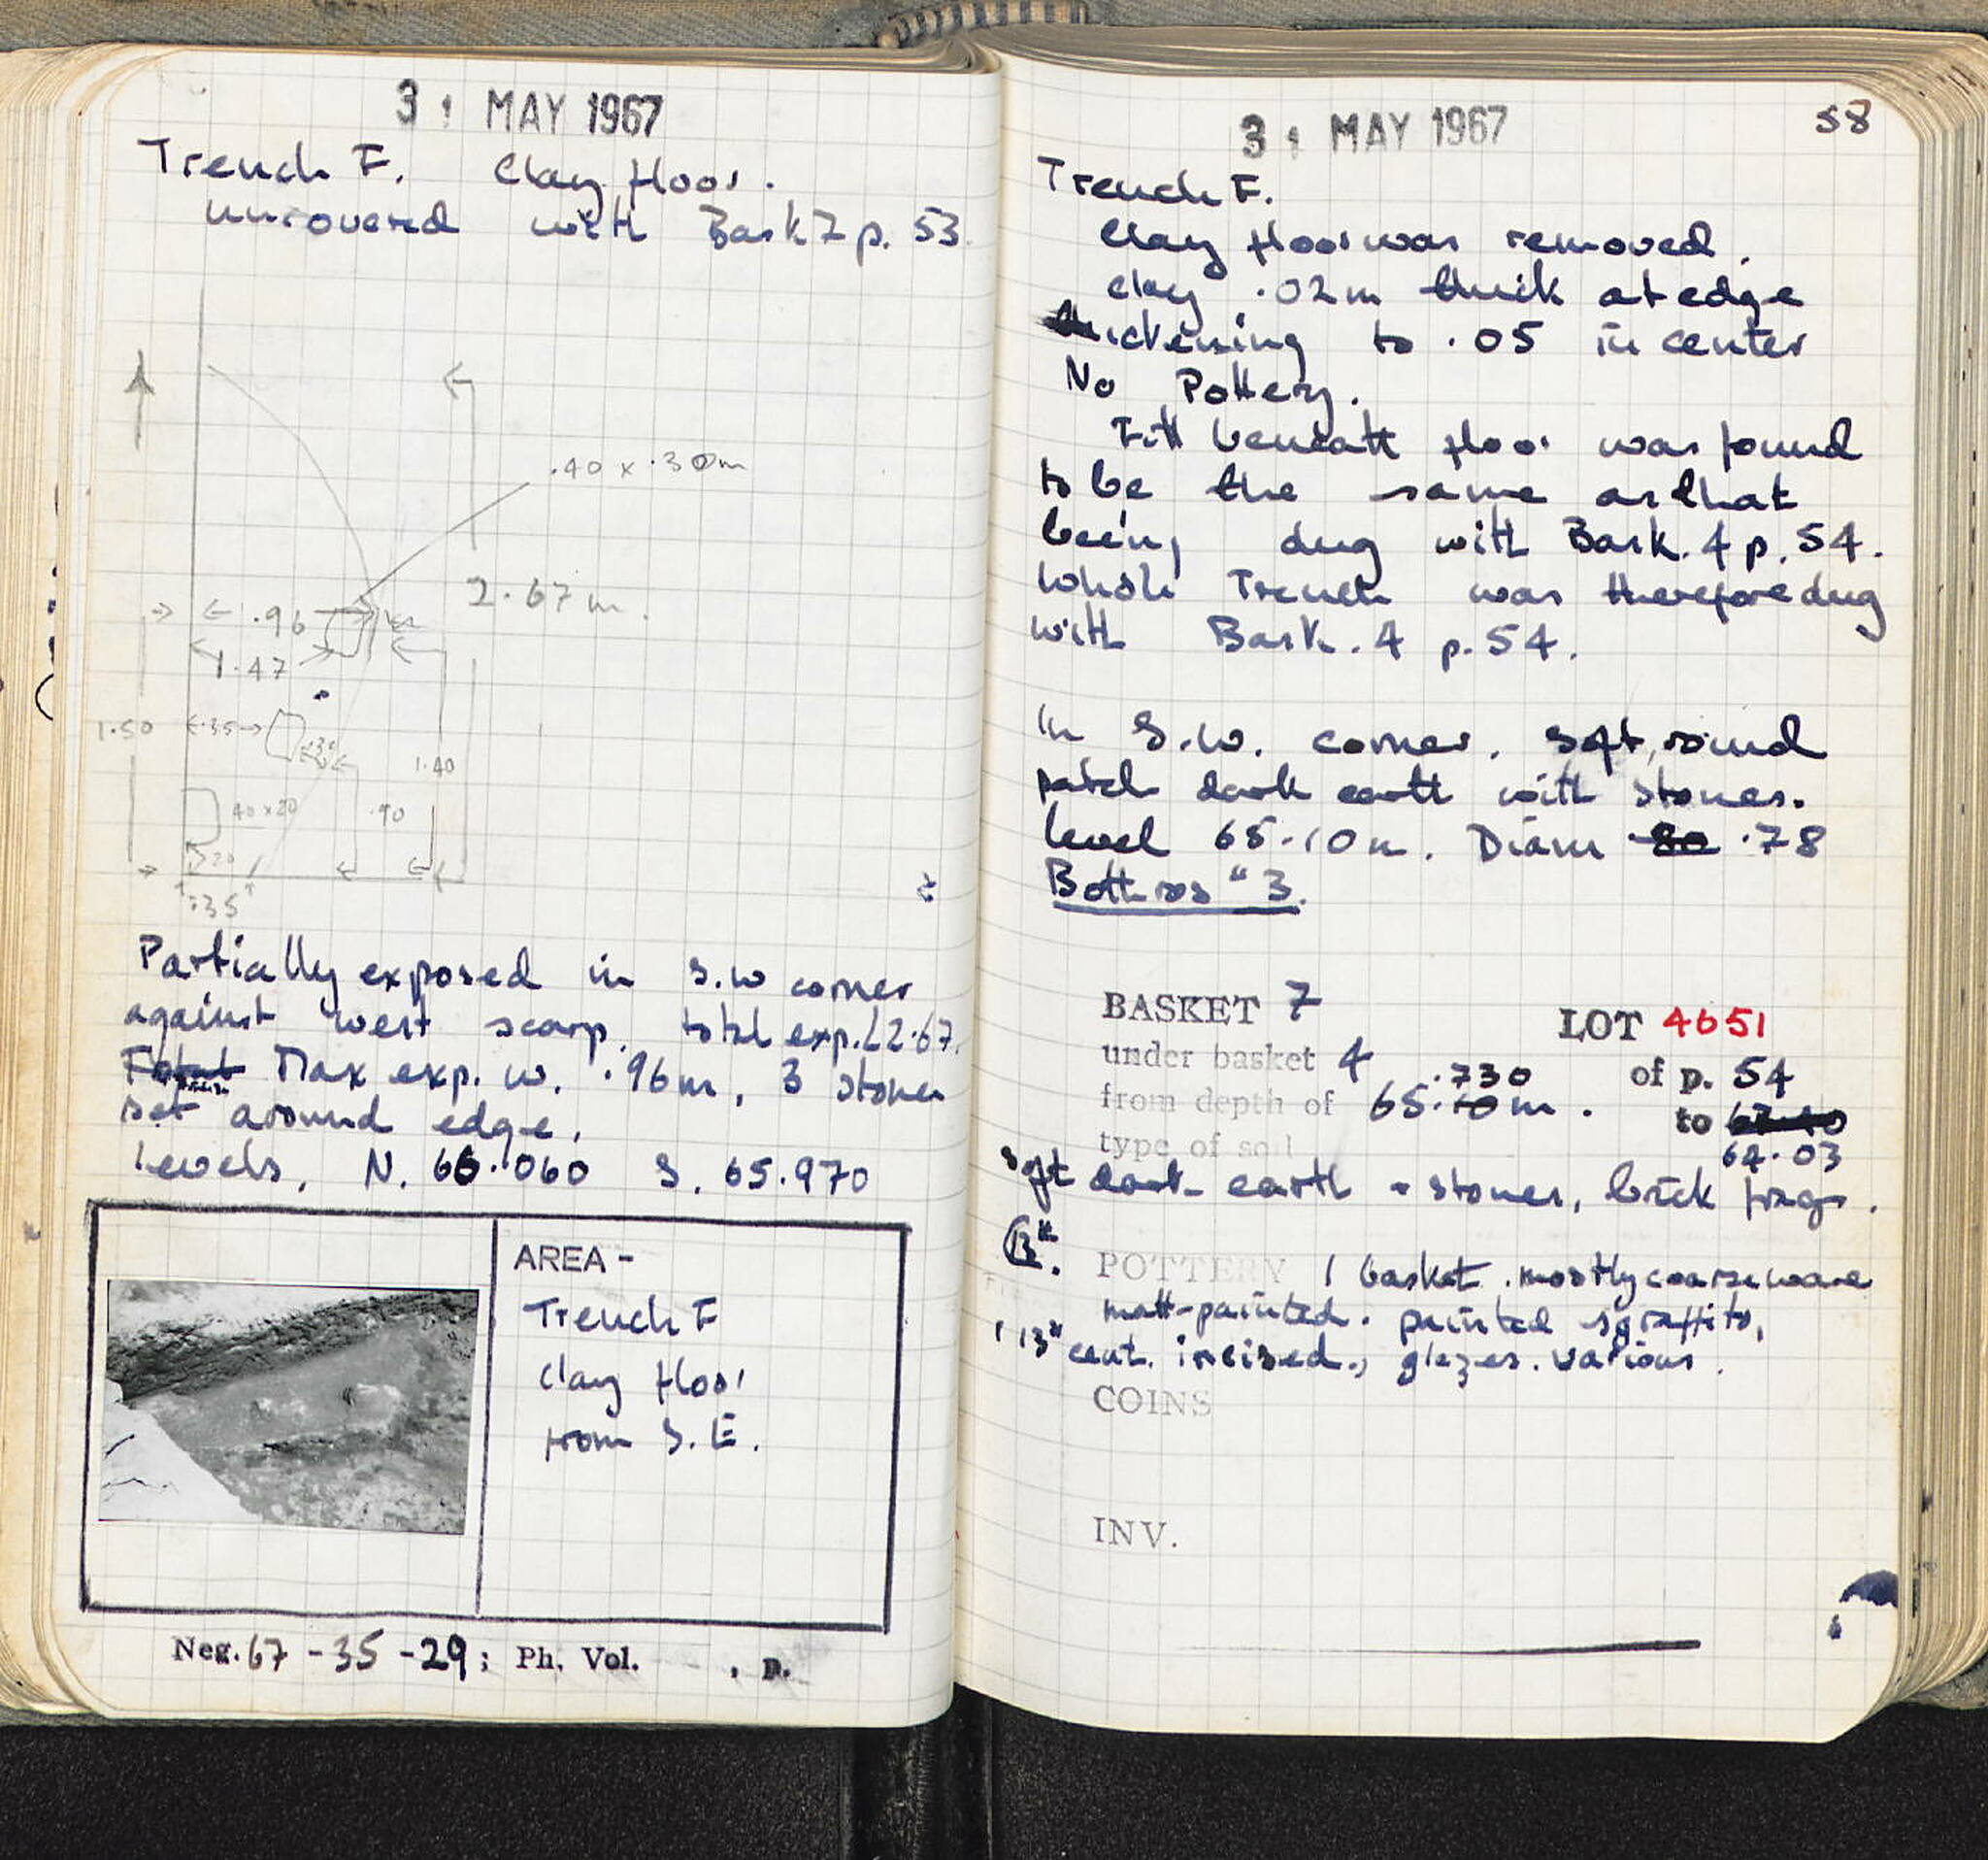 31 MAY 1967
Trench F. Clay floor.
uncovered with Bask 7 p. 53.
.40 x .30m
2.67m.
.96
1.47
1.50
.35
1.40
40x20
.90
20
.35
Partially exposed in S.W corner
against west scarp. total exp. L 2.67.
Max exp. w. .96m, 3 stones
set around edge.
Levels, N. 66.060 S. 65.970
AREA -
Trench F
Clay floor
from S.E.
Neg. 67 - 35 - 29; Ph. Vol. , p.
31 MAY 1967
58
Trench F.
Clay floor was removed.
clay .02m thick at edge
thickening to .05 in center
No Pottery.
Fill beneath floor was found
to be the same as that
being dug with Bask. 4 p. 54.
Whole Trench was therefore dug
with Bask. 4 p. 54.
In S.W. corner, soft, round
patch dark earth with stones.
level 65.10m. Diam 80 .78
Bothros "3.
BASKET 7
LOT 4651
under basket 4 of p. 54
.730
from depth of 65.10m. to
64.03
type of soil
soft dark earth + stones, brick frags.
POTTERY 1 basket. mostly coarse ware
matt-painted. painted sgraffito,
13" cent. incised., glazes. various.
COINS
INV.